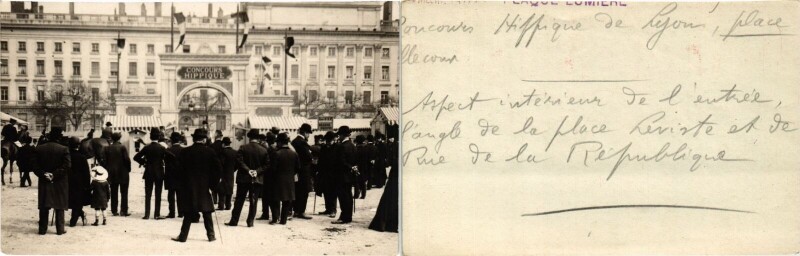 CONCOURS
HIPPIQUE
PLAQUE LUMIÈRE
Concours Hippique de Lyon, place
llecour
Aspect intérieur de l'entrée,
l'angle de la place Leviste et de
Rue de la République